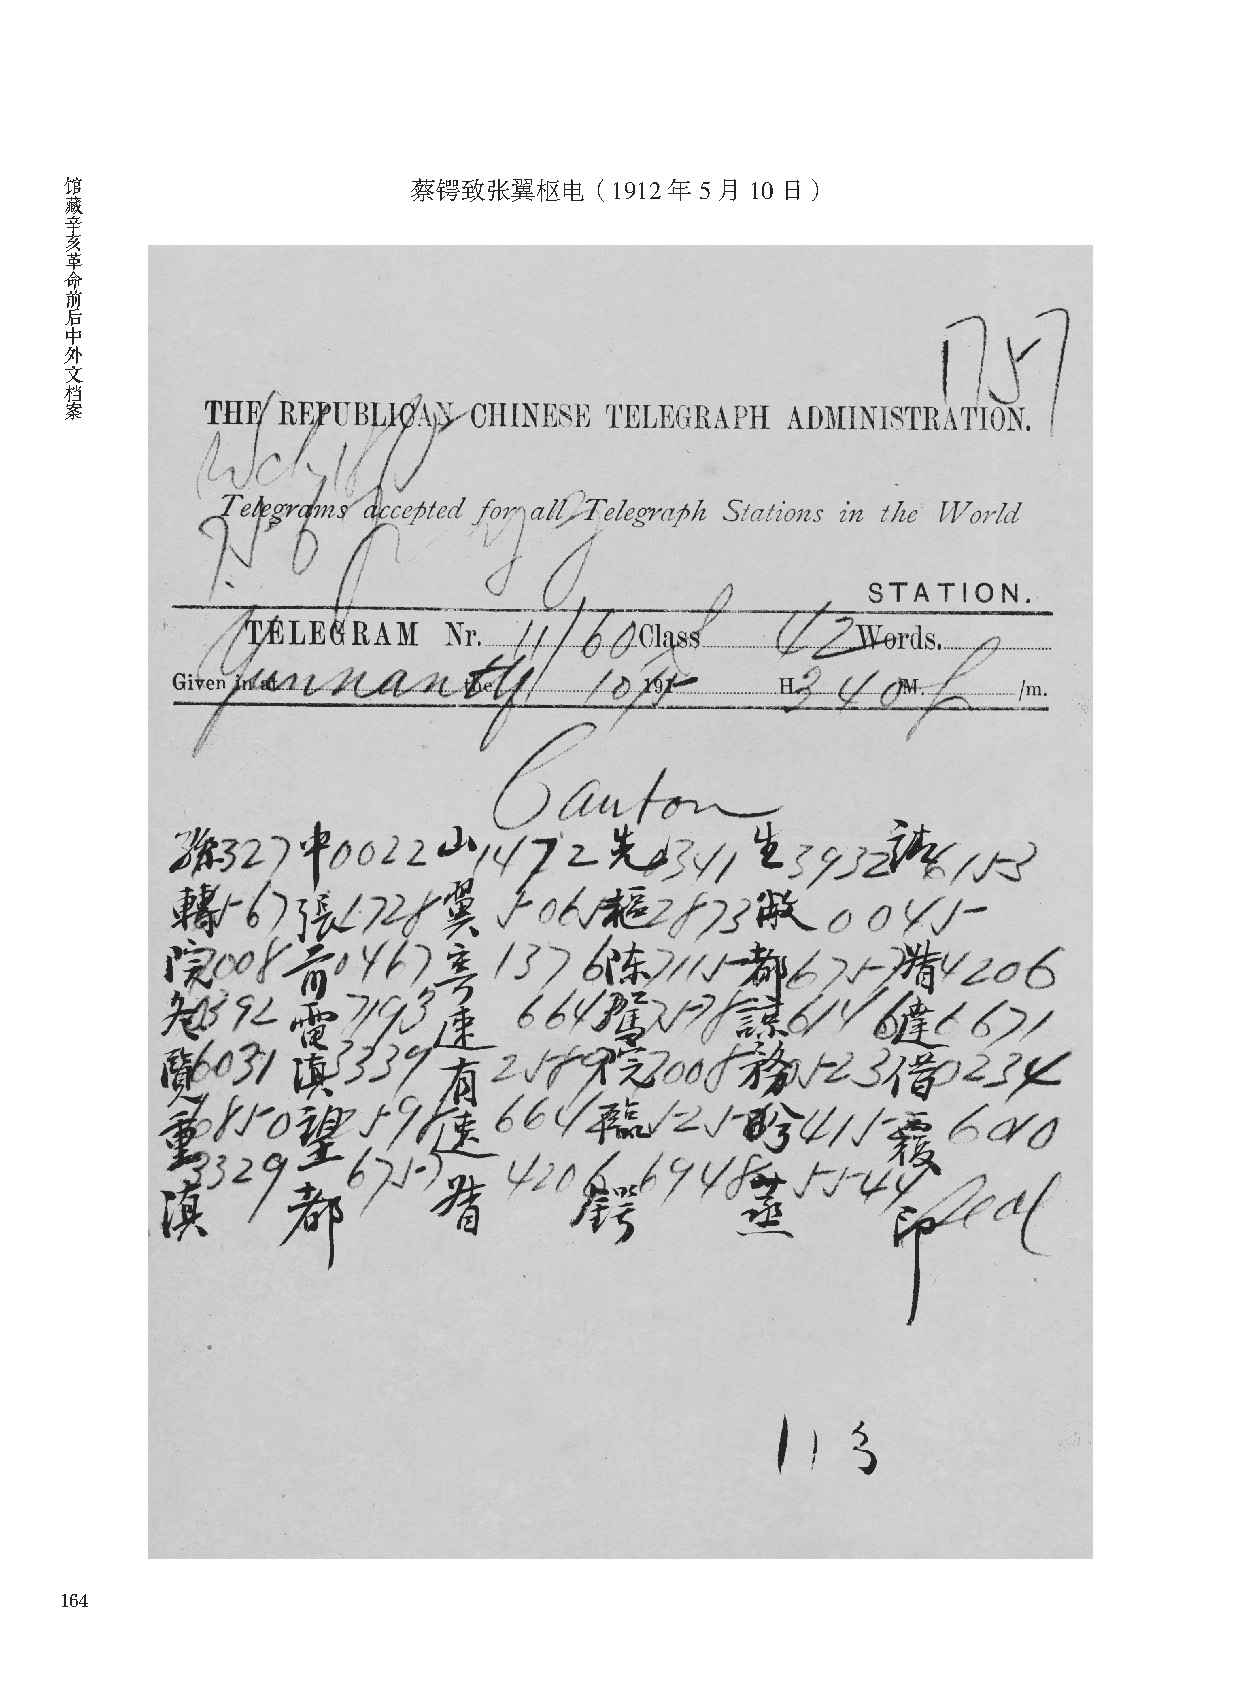 馆藏辛亥革命前后中外文档案
蔡锷致张翼枢电（1912年5月10日）
1757
THE REPUBLICAN CHINESE TELEGRAPH ADMINISTRATION.
Telegrams accepted for all Telegraph Stations in the World
STATION.
TELEGRAM Nr. 11/60 Class 42 Words.
Given in at Yunnanfu the 10/5 191 H. 3 40 M. /m.
Canton
孫1327中0022山1472先0341生3932請6153
轉6567張1728翼5065樞2873敝0045
院7008前0467寄1376陈7115都6757督4206
電7193速6643駕7578諒6146達6671
覽6031滇3339有2589院7008務0523借0234
重6850望2598速6643臨5258盼4115覆6010
滇3329都6757督4206鍔6948蒸5544印Seal
11号
164